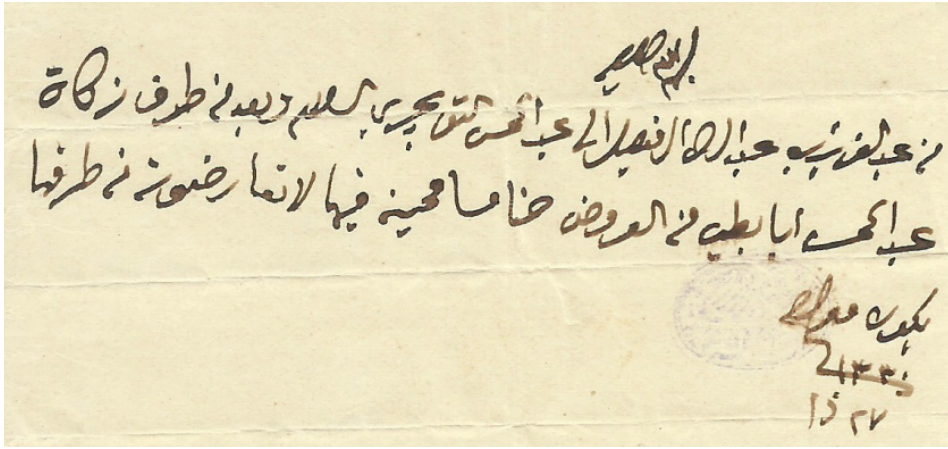 بسم الله
من عبدالعزيز بن عبدالرحمن الفيصل الى عبدالمحسن التويجري السلام وبعد من طرف زكاة
عبدالمحسن ابا بطين من العروض حنا مسامحينه فيها لا تعارضونه من طرفها
يكون معلوم
١٣٣٠
٢٧ ذا